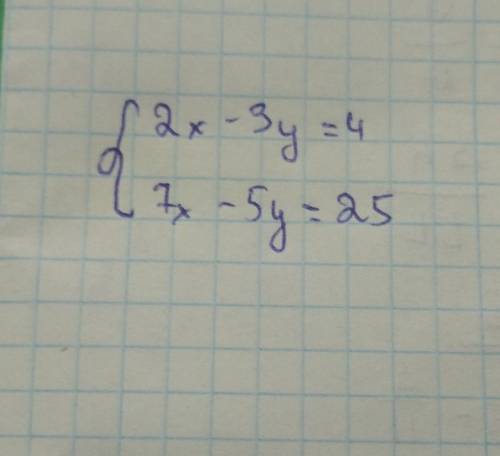 2x - 3y = 4
7x - 5y = 25